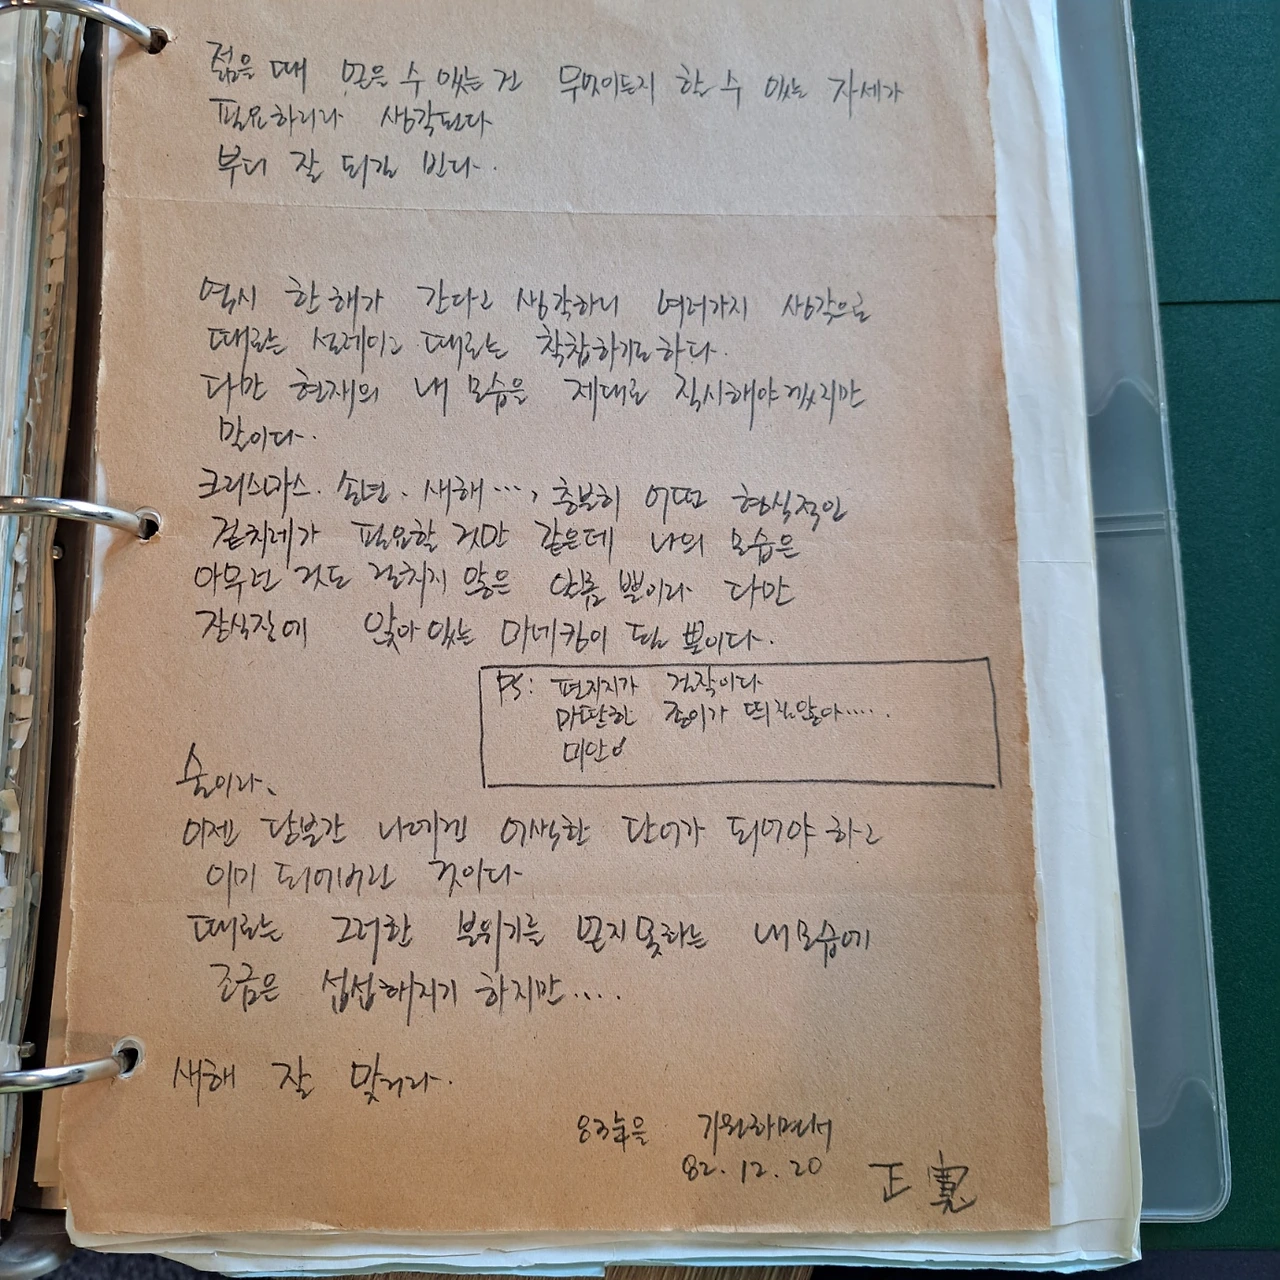 젊을 때 얻을 수 있는 건 무엇이든지 할 수 있는 자세가
필요하리라 생각된다
부디 잘 되길 빈다.
역시 한해가 간다고 생각하니 여러가지 생각으로
때로는 설레이고 때로는 착찹하기도하다.
다만 현재의 내 모습을 제대로 직시해야겠지만
말이다.
크리스마스. 송년. 새해..., 충분히 어떤 형식적인
겉치레가 필요할 것만 같은데 나의 모습은
아무런 것도 걸치지 않은 뿐이라 다만
장식장에 앉아 있는 마네킹이 될 뿐이다.
PS: 편지지가 걸작이다
마땅한 종이가 띄질않아.....
미안
술이라.
이젠 당분간 나에겐 어색한 단어가 되어야 하고
이미 되어버린 것이다
때로는 그러한 분위기를 얻지못하는 내모습에
조금은 섭섭해지기 하지만....
새해 잘 맞거라.
83年을 기원하면서
82.12.20 正寬